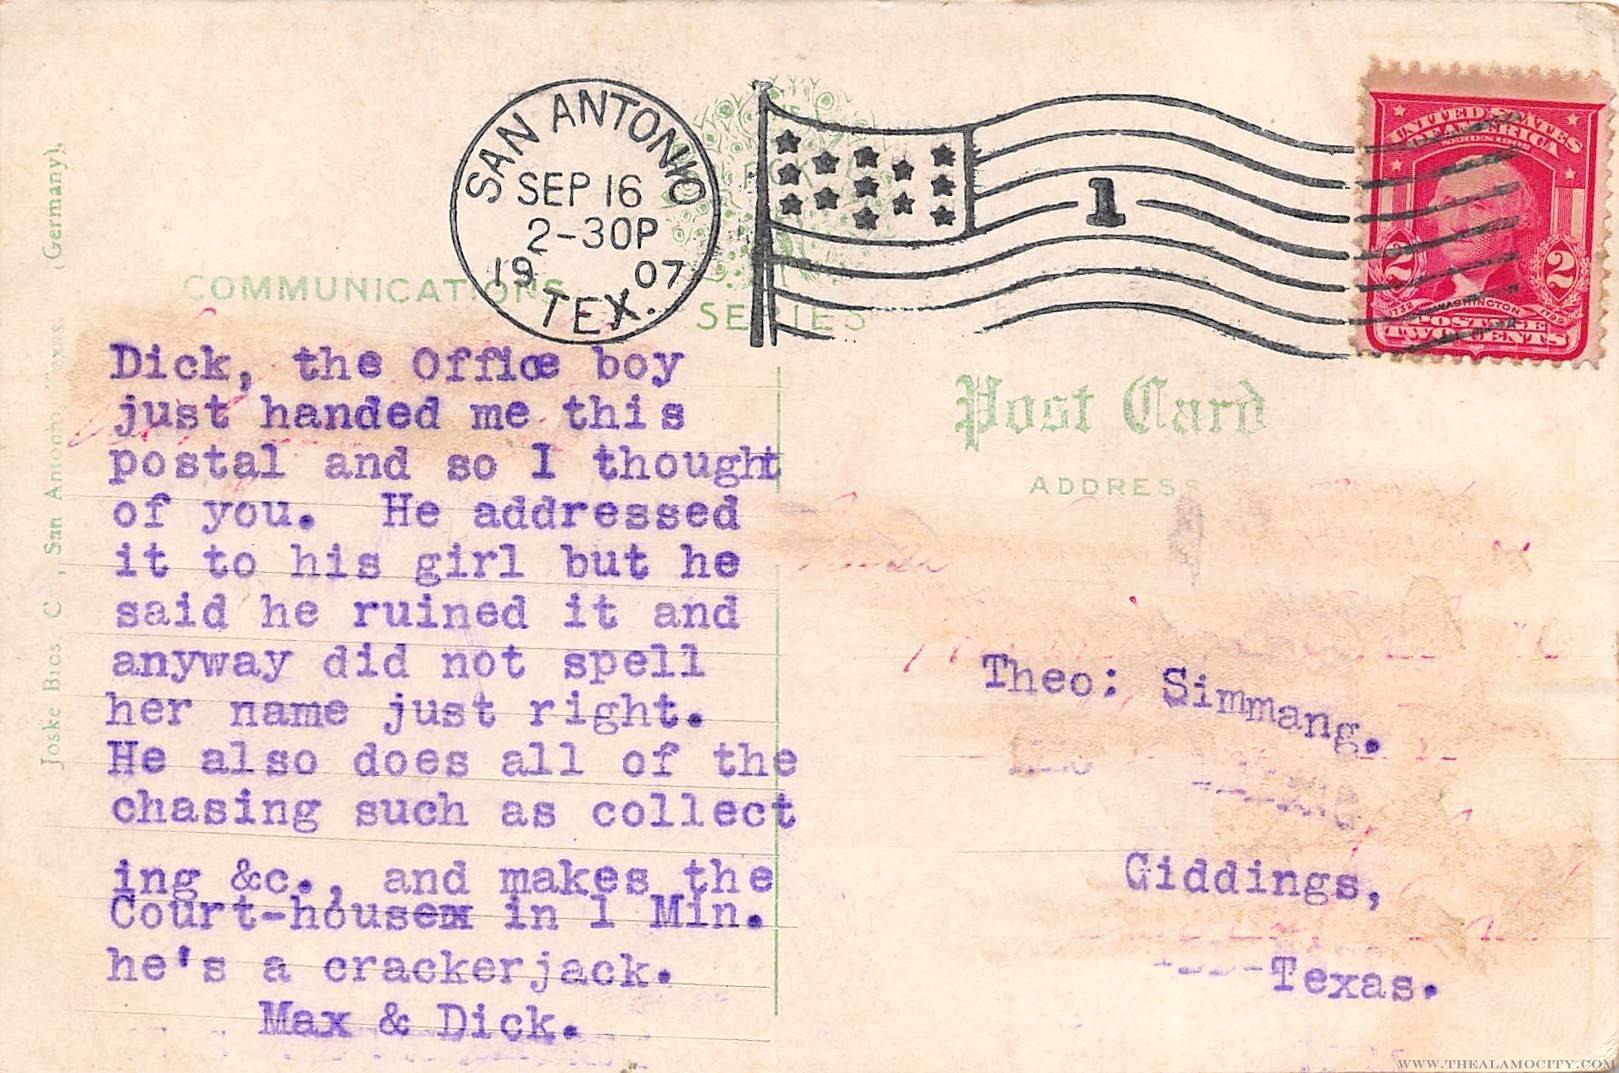 SAN ANTONIO
SEP 16
2-30P
19 07
TEX.
1
UNITED STATES
OF AMERICA
SERIES 1902
2 2
1732 WASHINGTON 1799
POSTAGE
TWO CENTS
COMMUNICATIONS
SERIES
Post Card
ADDRESS
Joske Bros. C, San Antonio, Texas. (Germany).
Dick, the Office boy
just handed me this
postal and so I thought
of you. He addressed
it to his girl but he
said he ruined it and
anyway did not spell
her name just right.
He also does all of the
chasing such as collect
ing &c., and makes the
Court-house in 1 Min.
he's a crackerjack.
Max & Dick.
Theo: Simmang.
Giddings,
Texas.
WWW.THEALAMOCITY.COM